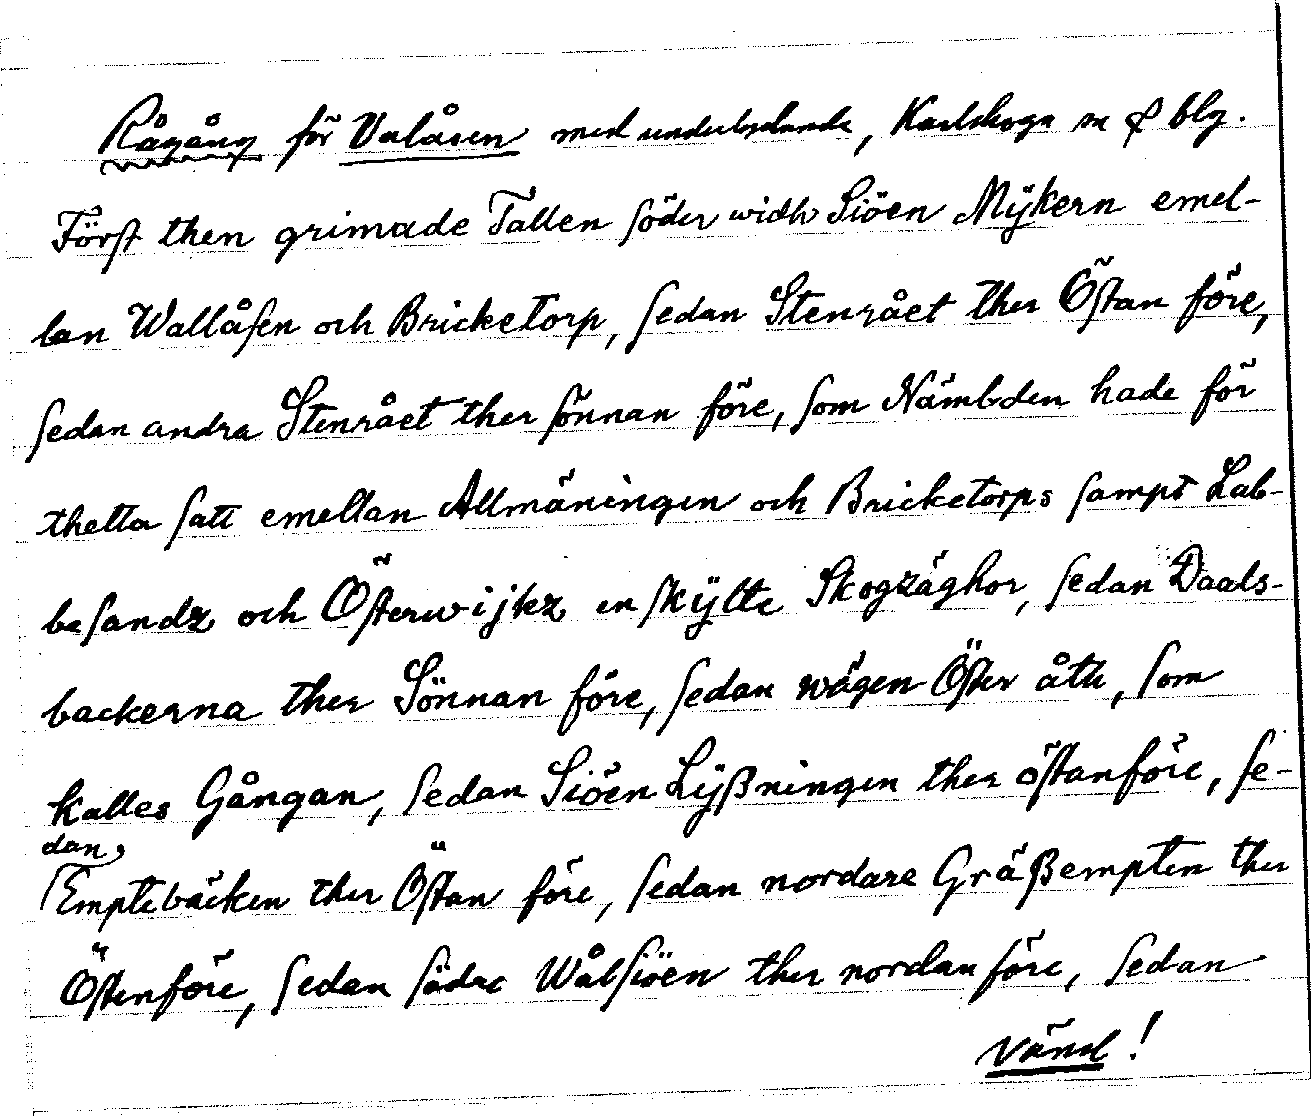 Rågång för Valåsen med underlydande, Karlskoga sn & blg.
Först then grimade Tallen söder widh Siöen Mÿkern emel-
lan Wallåsen och Bricketorp, sedan Stenrået ther Östan före,
sedan andra Stenrået ther sönnan före, som Nämbden hade för
thetta satt emellan Allmäningen och Bricketorps sampt Lab-
besandz och Österwijkz enskÿlte Skogzäghor, sedan Daals-
backerna ther Sönnan före, sedan wägen Öster åth, som
kalles Gångan, sedan Siöen Lÿßningen ther östanföre, se-
dan
Emptebäcken ther Östan före, sedan nordare Gräßempten ther
Östenföre, sedan södre Wålsiöen ther nordanföre, sedan
Vänd!